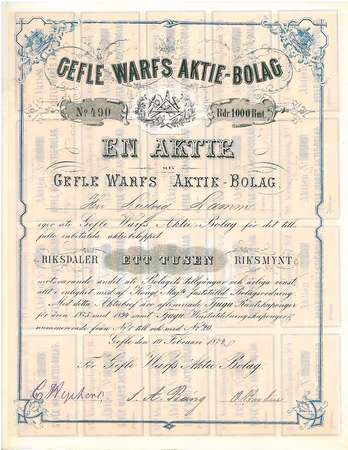 GEFLE WARFS AKTIE-BOLAG
No 490
Rdr 1000 Rmt
EN AKTIE
uti
GEFLE WARFS AKTIE-BOLAG
Herr Ludvig Lamm
eger uti Gefle Warfs Aktie-Bolag för det till
fullo inbetalda aktiebeloppet
RIKSDALER ETT TUSEN RIKSMYNT
motsvarande andel uti Bolagets tillgångar och årliga vinst,
allt i enlighet med af Kongl. Maj:t fastställd Bolagsordning.
Med detta Aktiebref äro aflemnade tjugu Räntekuponger
för åren 1875 med 1894 samt tjugu Vinstutdelningskuponger,
nummererade från No 1 till och med No 20.
Gefle den 10 Februari 1874
För Gefle Warfs Aktie Bolag